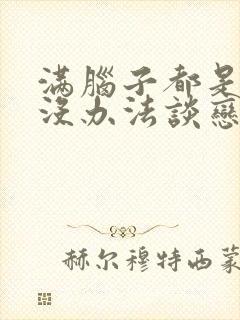 滿腦子都是
沒办法談戀
赫尔穆特西蒙